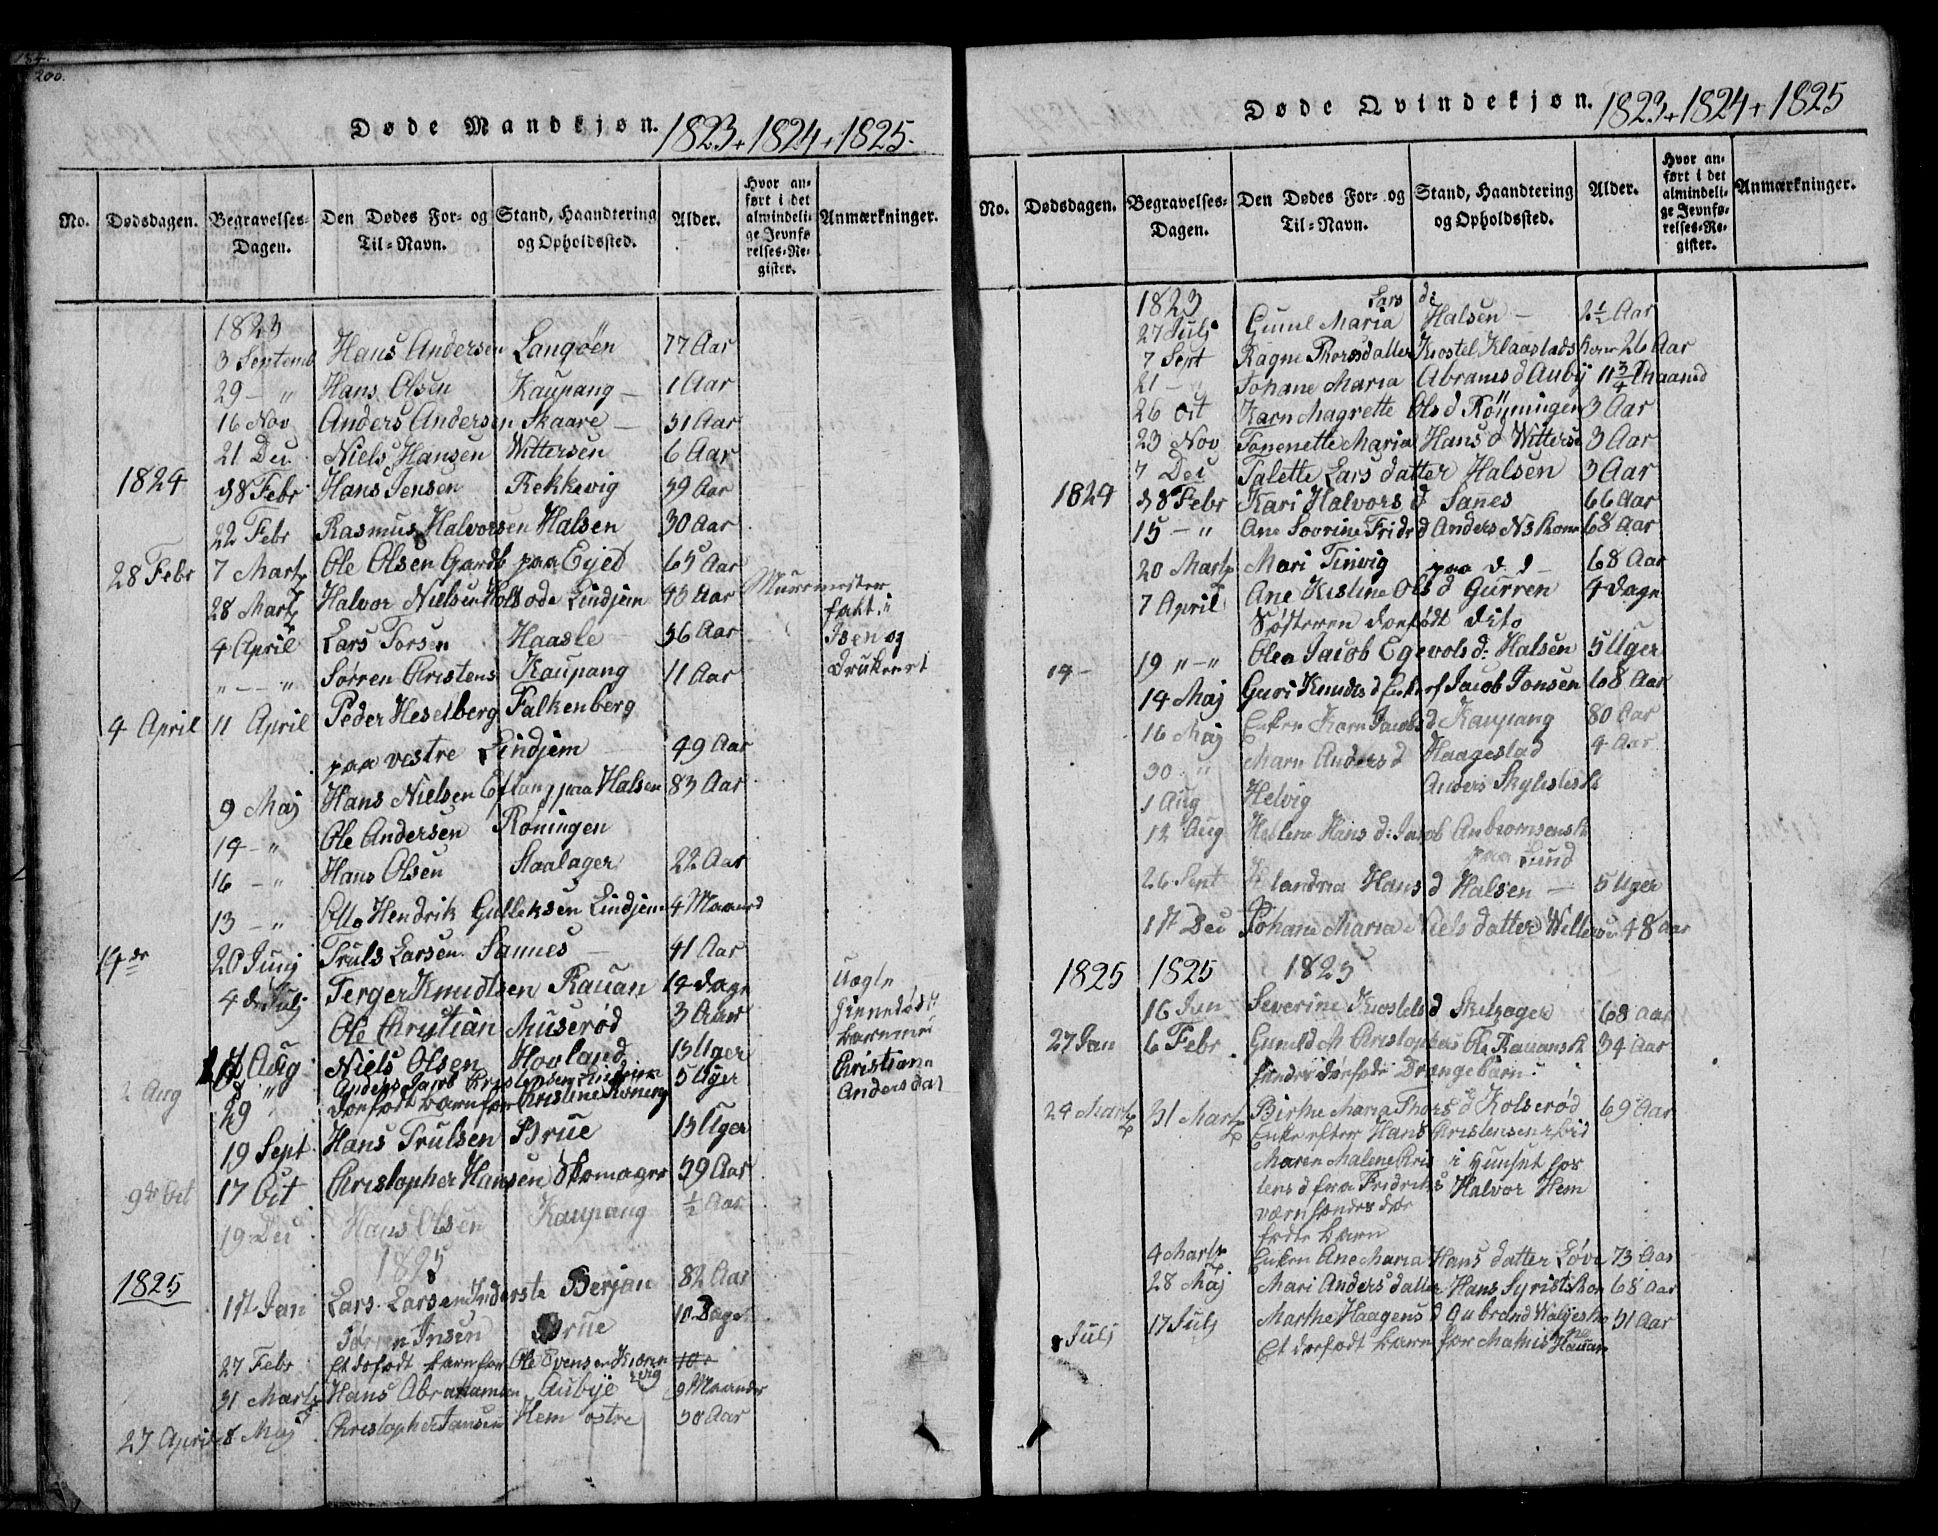 184.
200.
Døde Mandkjøn. 1823 + 1824 + 1825.
No.
Dødsdagen.
Begravelses-Dagen.
Den Dødes For- og Til-Navn.
Stand, Haandtering og Opholdssted.
Alder.
Hvor anført i det almindelige Jevnførelses-Register.
Anmærkninger.
1823
3 Septemb Hans Andersen Langöen 77 Aar
29 - " Hans Olsen Kaupang - 1 Aar
16 Nov Anders Andersen Skaare - 31 Aar
21 Dec Niels Hansen Wittersen 6 Aar
1824 8 Febr Hans Jensen Rekkevig 39 Aar
22 Febr Rasmus Halvorsen Halsen 30 Aar
28 Febr 7 Marts Ole Olsen Gardb paa Eyed 65 Aar
28 Marts Halvor Nielsen ode Lindjem 43 Aar Muurmester
4 April Lars Torsen Haasle 36 Aar Isen og
" - - " Sørren Christens Kaupang 11 Aar Druknert
4 April 11 April Peder Heselberg Falkenberg
paa vestre Lindjem 49 Aar
9 Maj Hans Nielsen Eftang paa Halsen 83 Aar
14 - " Ole Andersen Roningen
16 - " Hans Olsen Staalager 22 Aar
13 - " Hendrik Gulleksen Lindjem 4 Maaned
14de 20 Junj Truls Larsen Sannes - 41 Aar
4 Julj Terger Knudtsen Rauan 14 dage Uægte
Ole Christian Muserød 3 Aar
Aug Niels Olsen Hovland 13 Uger Christiane
2 Aug " Anders Jacob Christensen Lindjem 5 Uger Andersdat
29 dödfödt barn for Christine Roning
19 Sept Hans Trulsen Brue 13 Uger
9de Oct 17 Oct Christopher Hansen Skomager 39 Aar
19 Dec Hans Olsen Kaupang ½ Aar
1825
1825 Jan Lars Larsen Inderste Berjan 82 Aar
Sörren Brue 10 Dage
27 Febr Et döfödt barn for Ole Evensen
31 Marts Hans Abrahamsen Aubye 9 Maaneder
27 April 8 Maj Christopher Jansen Hem ostre 30 Aar
Døde Qvindekjøn. 1823 + 1824 + 1825
No.
Dødsdagen.
Begravelses-Dagen.
Den Dødes For- og Til-Navn.
Stand, Haandtering og Opholdssted.
Alder.
Hvor anført i det almindelige Jevnførelses-Register.
Anmærkninger.
1823 Lars d:
27 Julj Gunil Maria Halsen - 2½ Aar
7 Sept Ragne Thorsdatter Krostel Klaastads kone 26 Aar
21 - " Johane Maria Abrams d Auby 11¾ Maaned
26 Oct Karn Magrette Ols d Röyningen 3 Aar
23 Nov Tonenette Maria Hans d Witterse 3 Aar
7 Dec Talette Lars datter Halsen 3 Aar
1824 8 Febr Kari Halvors d Sanes 66 Aar
15 - " Ane Sovrine Fridr d Anders Ns kone 68 Aar
20 Marts Mari Tinvig paa d. d - 68 Aar
7 April Ane Kistine Ols d Gurren 4 dage
Søsteren dødfödt dito
14 - 19 " - " Olea Jacob Egevols d: Halsen 5 Uger
14 Maj Guri Knudts d Enke ef Jacob Jonsen 68 Aar
16 Maj Enken Karn Jacobs d Kaupang 80 Aar
30 " Marn Anders d Haagestad 4 Aar
1 Aug Helvig Anders
12 Aug Hellene Hans d: Jacob
paa Lund
26 Sept Hans d Halsen - 5 Uger
Dec Johane Maria Niels datter 48 Aar
1825 1825 1825
16 Jan Severine Krostels d 68 Aar
27 Jan 6 Febr Gunild M Christophers Ole Rauans k 34 Aar
hendes dödfödte Drengebarn.
24 Marts 31 Marts Birthe Maria Thors d Kolserød 69 Aar
Enke efter Hans Christensen
Maren Malene Chris i Huuset hos
tens d fra Fridriks Halvor Hem
værn hendes död
födte barn
4 Marts Enken Ane Maria Hans datter Løve 73 Aar
28 Maj Mari Anders datter Hans Syrist kon 68 Aar
Julj 17 Julj Marthe Haagens d Gubrand 31 Aar
Et dødfödt barn for Mathis Hauan